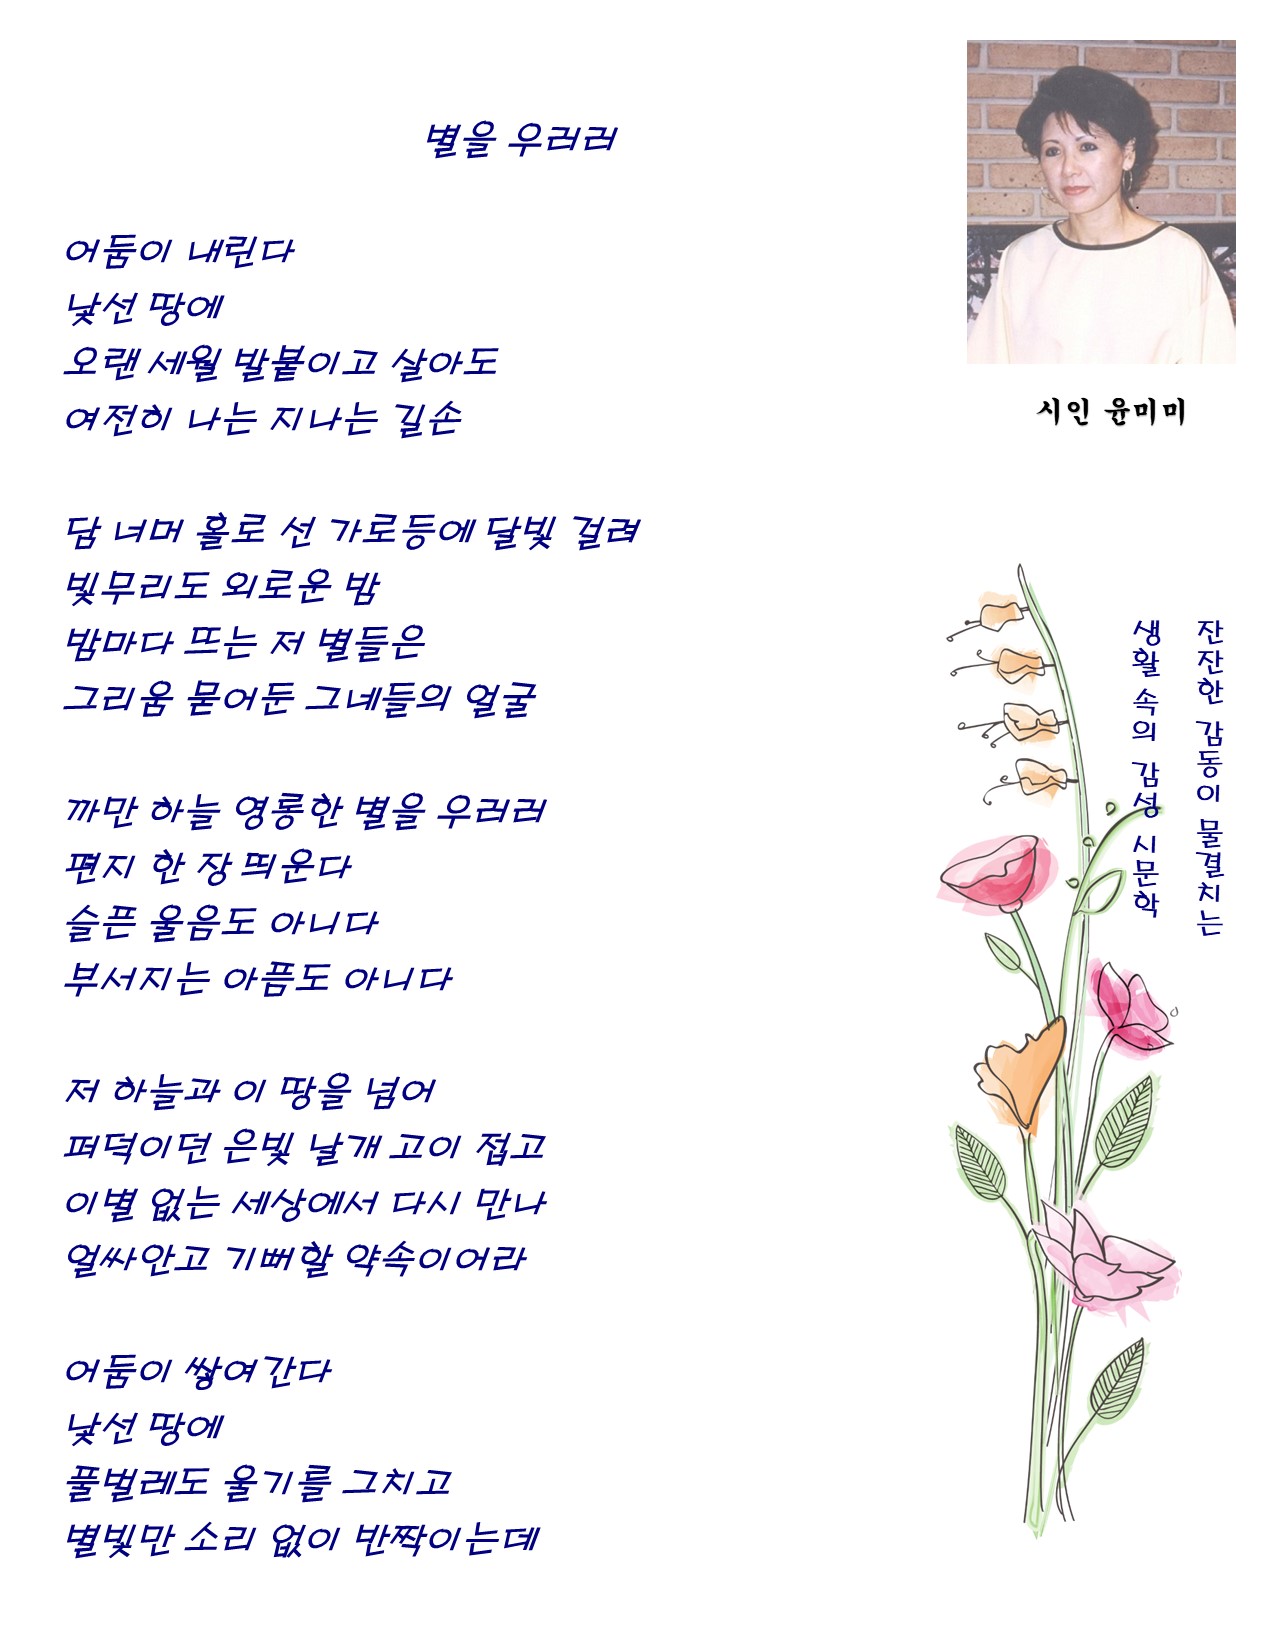 별을 우러러
어둠이 내린다
낯선 땅에
오랜 세월 발붙이고 살아도
여전히 나는 지나는 길손
담 너머 홀로 선 가로등에 달빛 걸려
빛무리도 외로운 밤
밤마다 뜨는 저 별들은
그리움 묻어둔 그네들의 얼굴
까만 하늘 영롱한 별을 우러러
편지 한 장 띄운다
슬픈 울음도 아니다
부서지는 아픔도 아니다
저 하늘과 이 땅을 넘어
퍼덕이던 은빛 날개 고이 접고
이별 없는 세상에서 다시 만나
얼싸안고 기뻐할 약속이어라
어둠이 쌓여간다
낯선 땅에
풀벌레도 울기를 그치고
별빛만 소리 없이 반짝이는데
시인 윤미미
잔잔한 감동이 물결치는
생활 속의 감성 시문학